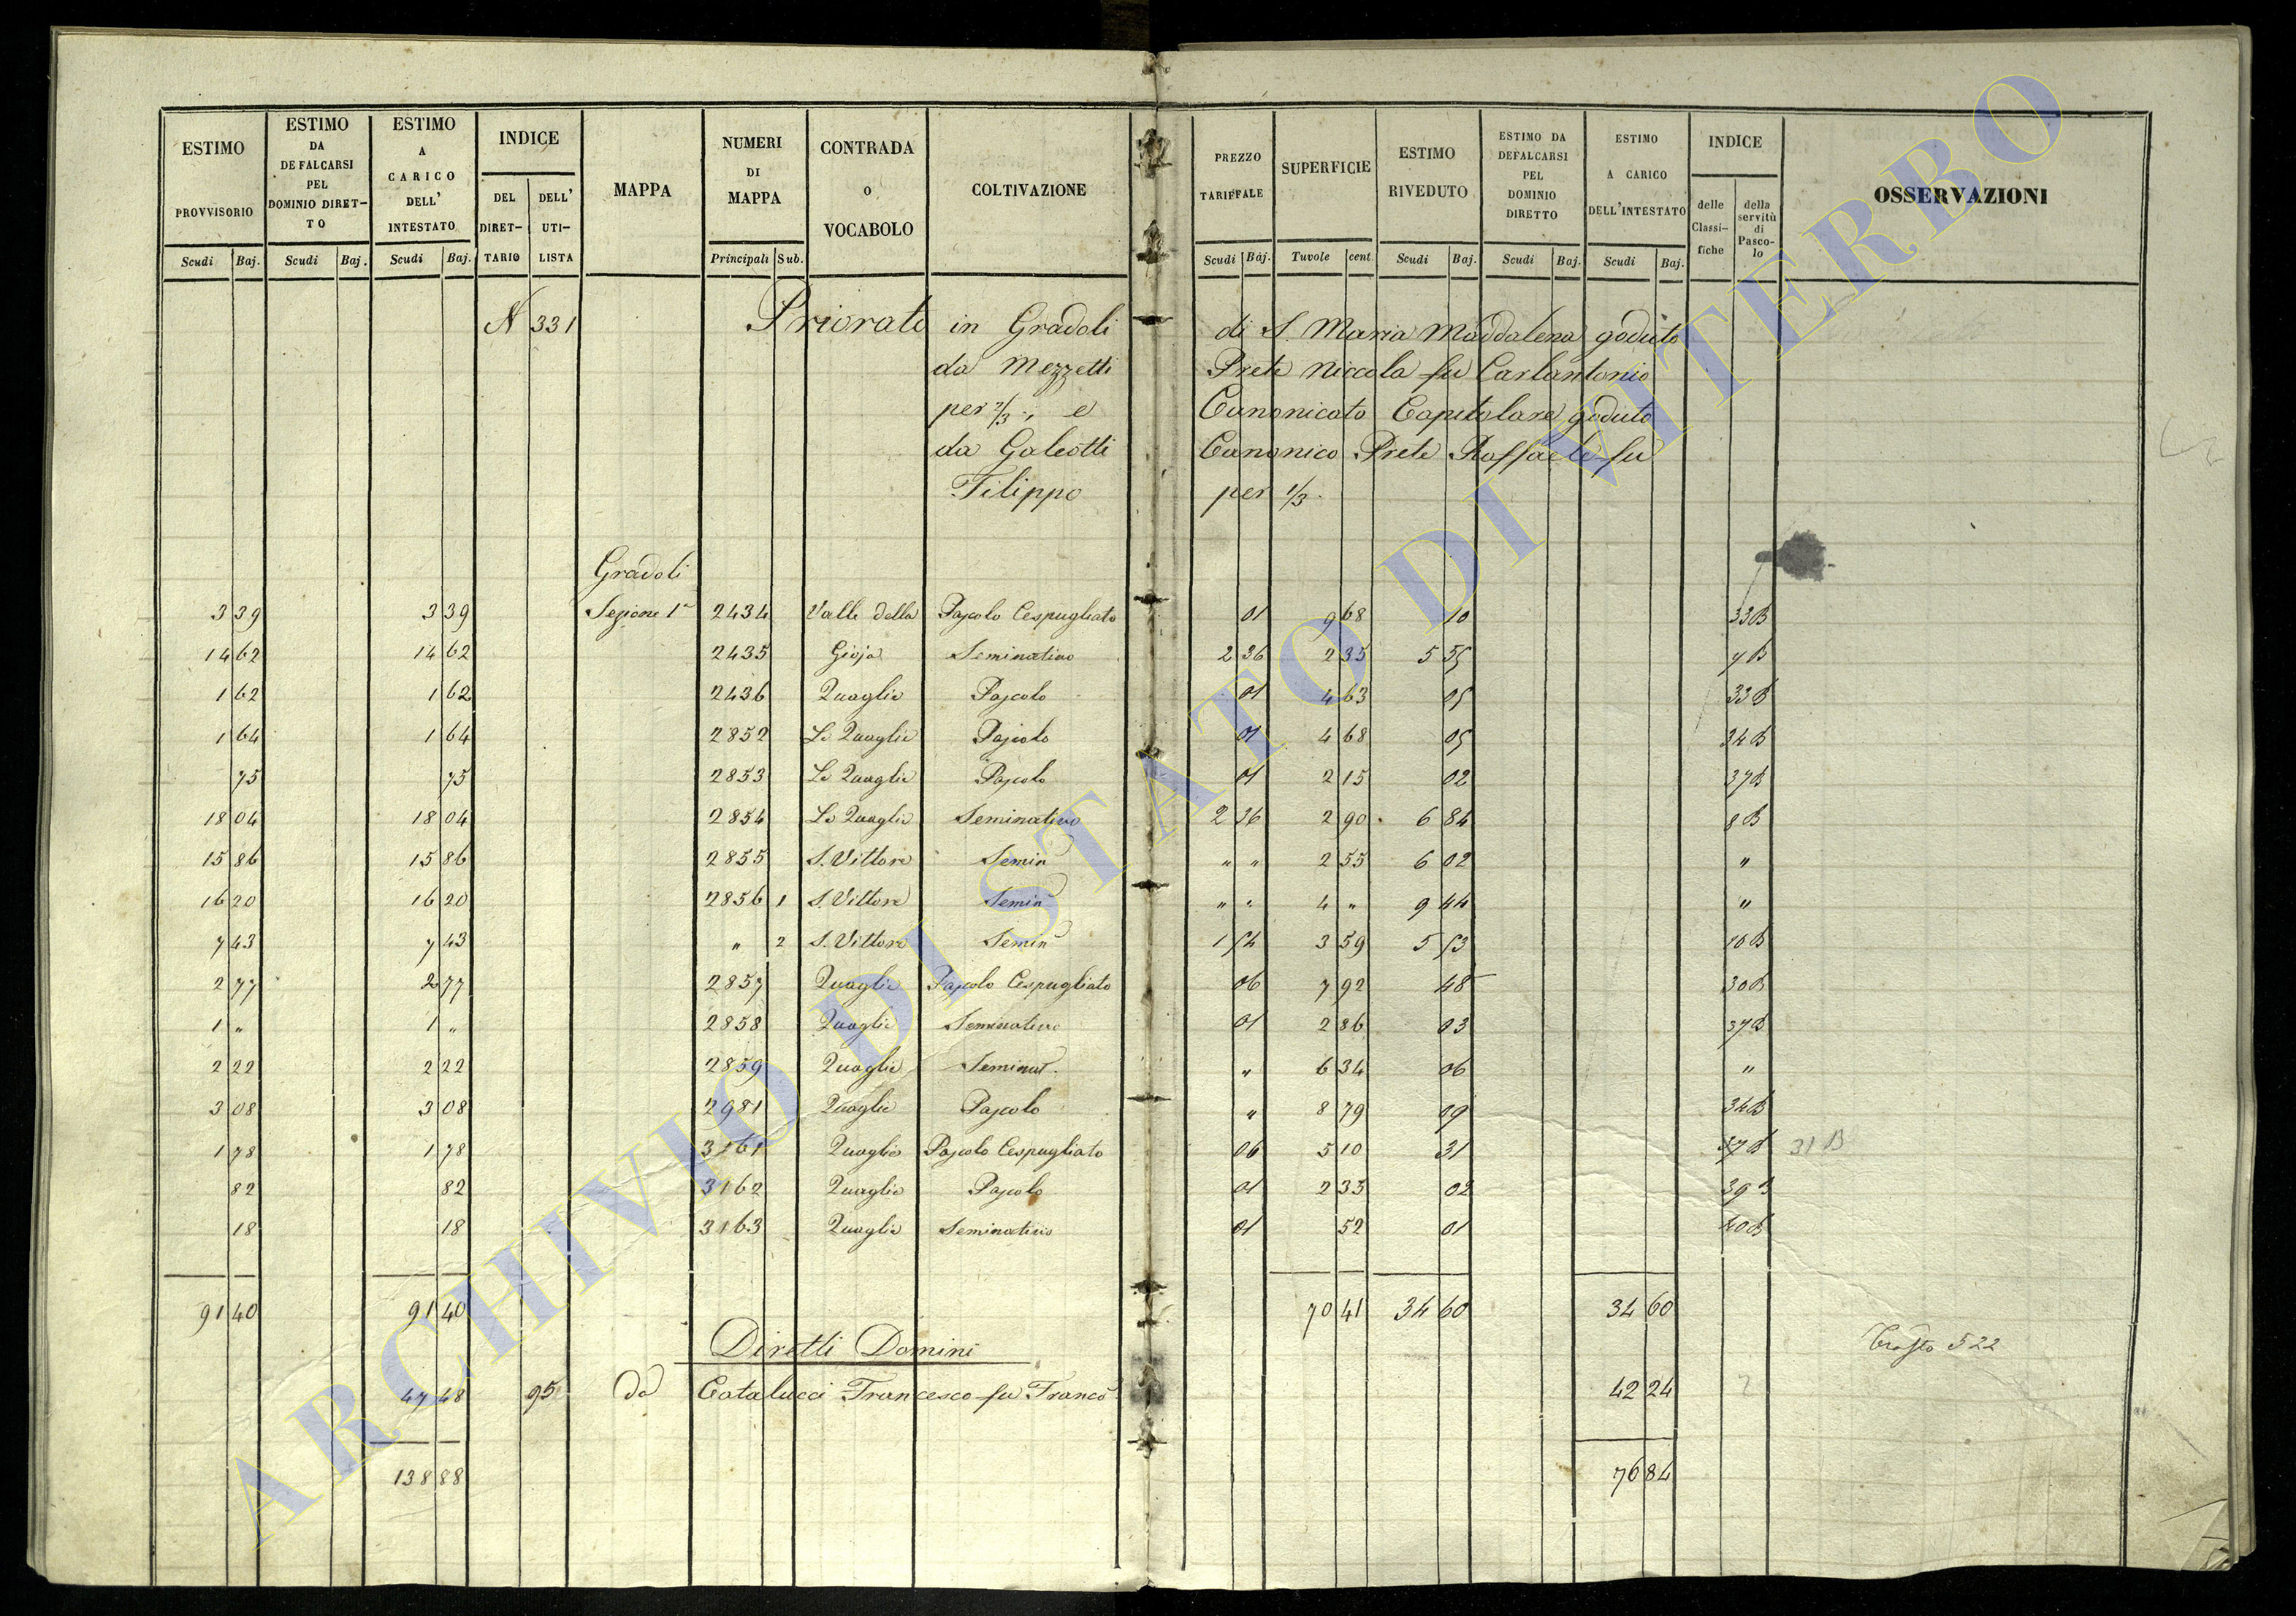 ESTIMO PROVVISORIO | ESTIMO DA DEFALCARSI PEL DOMINIO DIRETTO | ESTIMO A CARICO DELL' INTESTATO | INDICE DEL DIRETTARIO | DELL' UTILISTA | MAPPA | NUMERI DI MAPPA | CONTRADA o VOCABOLO | COLTIVAZIONE | PREZZO TARIFFALE | SUPERFICIE | ESTIMO RIVEDUTO | ESTIMO DA DEFALCARSI PEL DOMINIO DIRETTO | ESTIMO A CARICO DELL'INTESTATO | INDICE delle Classifiche | della servitù di Pascolo | OSSERVAZIONI
Scudi Baj. | Scudi Baj. | Scudi Baj. | Principali Sub. | Scudi Baj. | Tuvole cent. | Scudi Baj. | Scudi Baj. | Scudi Baj.
N 331 Priorato in Gradoli di S. Maria Maddalena goduto
da Mezzetti Prete Niccola fu Carlantonio
per 2/3, e Canonicato Capitolare goduto
da Galeotti Canonico Prete Raffaele fu
Filippo per 1/3.
Gradoli
3 39 | 3 39 | Sezione 1a | 2434 | Valle della | Pascolo Cespugliato | 01 | 9 68 | 10 | 33B
14 62 | 14 62 | 2435 | Gioja | Seminativo | 2 36 | 2 35 | 5 55 | 7B
1 62 | 1 62 | 2436 | Quaglie | Pascolo | 01 | 4 63 | 05 | 33B
1 64 | 1 64 | 2852 | Le Quaglie | Pascolo | 01 | 4 68 | 05 | 34B
75 | 75 | 2853 | Le Quaglie | Pascolo | 01 | 2 15 | 02 | 37B
18 04 | 18 04 | 2854 | Le Quaglie | Seminativo | 2 36 | 2 90 | 6 84 | 8B
15 86 | 15 86 | 2855 | S. Vittore | Semin | " " | 2 55 | 6 02 | "
16 20 | 16 20 | 2856 1 | S. Vittore | Semin | " " | 4 " | 9 44 | "
7 43 | 7 43 | " 2 | S. Vittore | Semin | 1 54 | 3 59 | 5 53 | 10B
2 77 | 2 77 | 2857 | Quaglie | Pascolo Cespugliato | 06 | 7 92 | 48 | 30B
1 " | 1 " | 2858 | Quaglie | Seminativo | 01 | 2 86 | 03 | 37B
2 22 | 2 22 | 2859 | Quaglie | Seminat. | " | 6 34 | 06 | "
3 08 | 3 08 | 2981 | Quaglie | Pascolo | " | 8 79 | 09 | 34B
1 78 | 1 78 | 3161 | Quaglie | Pascolo Cespugliato | 06 | 5 10 | 31 | 37B | 31 B
82 | 82 | 3162 | Quaglie | Pascolo | 01 | 2 35 | 02 | 39
18 | 18 | 3163 | Quaglie | Seminativo | 01 | 52 | 01 | 40B
91 40 | 91 40 | 70 41 | 34 60 | 34 60
Diretti Domini
522
47 48 | 95 | da Catalucci Francesco fu Franco | 42 24
138 88 | 76 84
ARCHIVIO DI STATO DI VITERBO